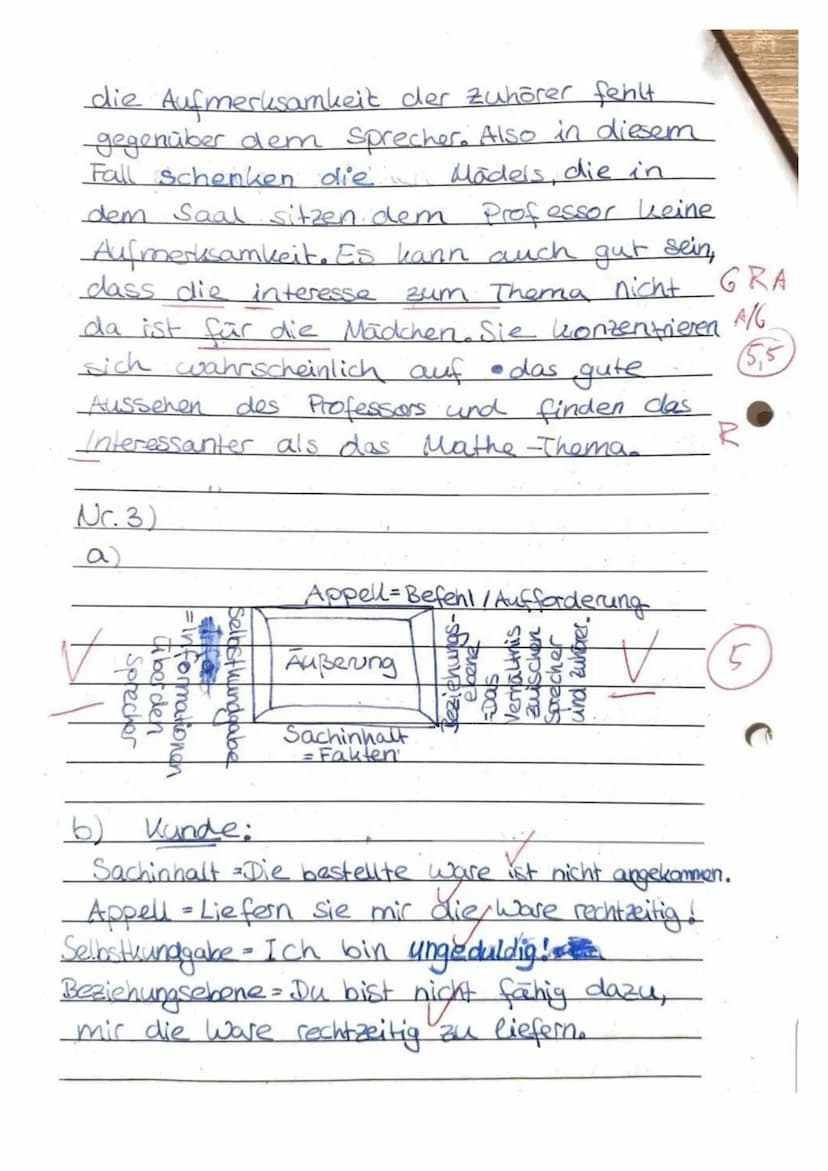 die Aufmerksamkeit der Zuhörer fehlt
gegenüber dem Sprecher. Also in diesem
Fall schenken die Mädels, die in
dem Saal sitzen dem Professor keine
Aufmerksamkeit. Es kann auch gut sein,
dass die interesse zum Thema nicht GRA
da ist für die Mädchen. Sie konzentrieren A/G
sich wahrscheinlich auf das gute 5,5
Aussehen des Professors und finden das
Interessanter als das Mathe-Thema. R
Nr. 3)
a)
Appell = Befehl / Aufforderung
Selbstkundgabe
= Informationen
über den
Sprecher
Äußerung
Beziehungs-
ebene
= Das
Verhältnis
zwischen
Sprecher
und Zuhörer.
5
Sachinhalt
= Fakten
b) Kunde:
Sachinhalt = Die bestellte Ware ist nicht angekommen.
Appell = Liefern Sie mir die Ware rechtzeitig!
Selbstkundgabe = Ich bin ungeduldig!
Beziehungsebene = Du bist nicht fähig dazu,
mir die Ware rechtzeitig zu liefern.